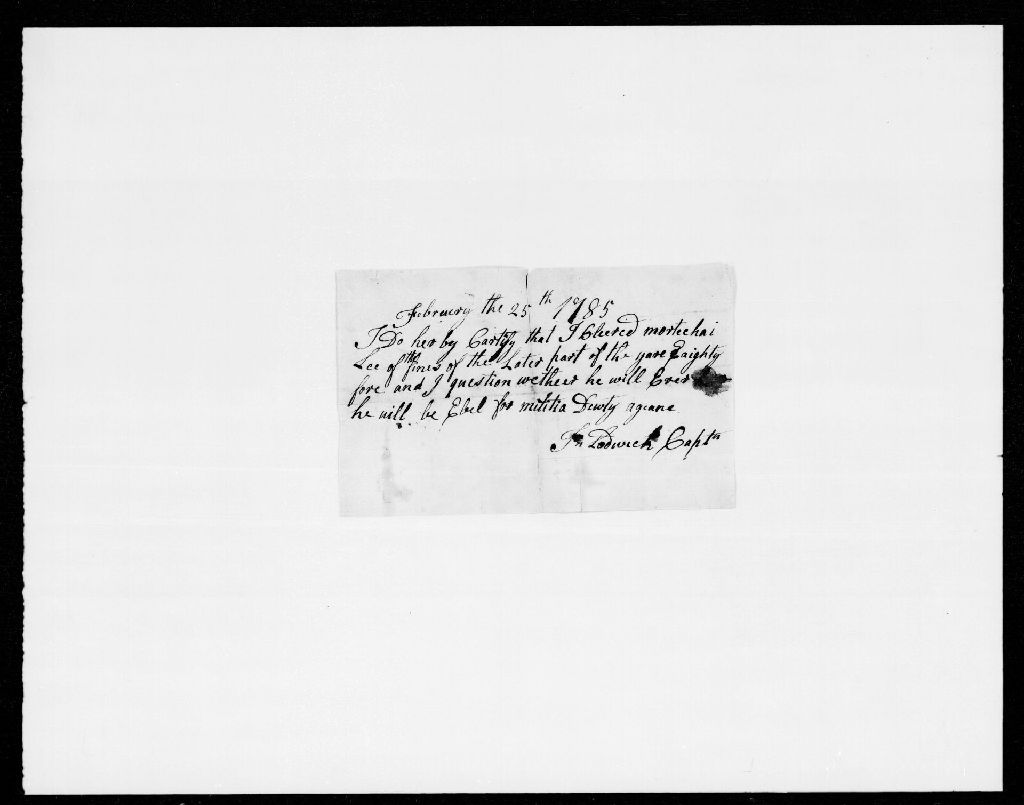 Februery the 25th 1785
I Do herby Cartify that I Cleered mortechai
Lee of the fines of the Later part of the yare Eaighty
fore and I question wetheer he will Ever
he will be Ebel for militia Dewty ageane
Jn Lodwick Captn